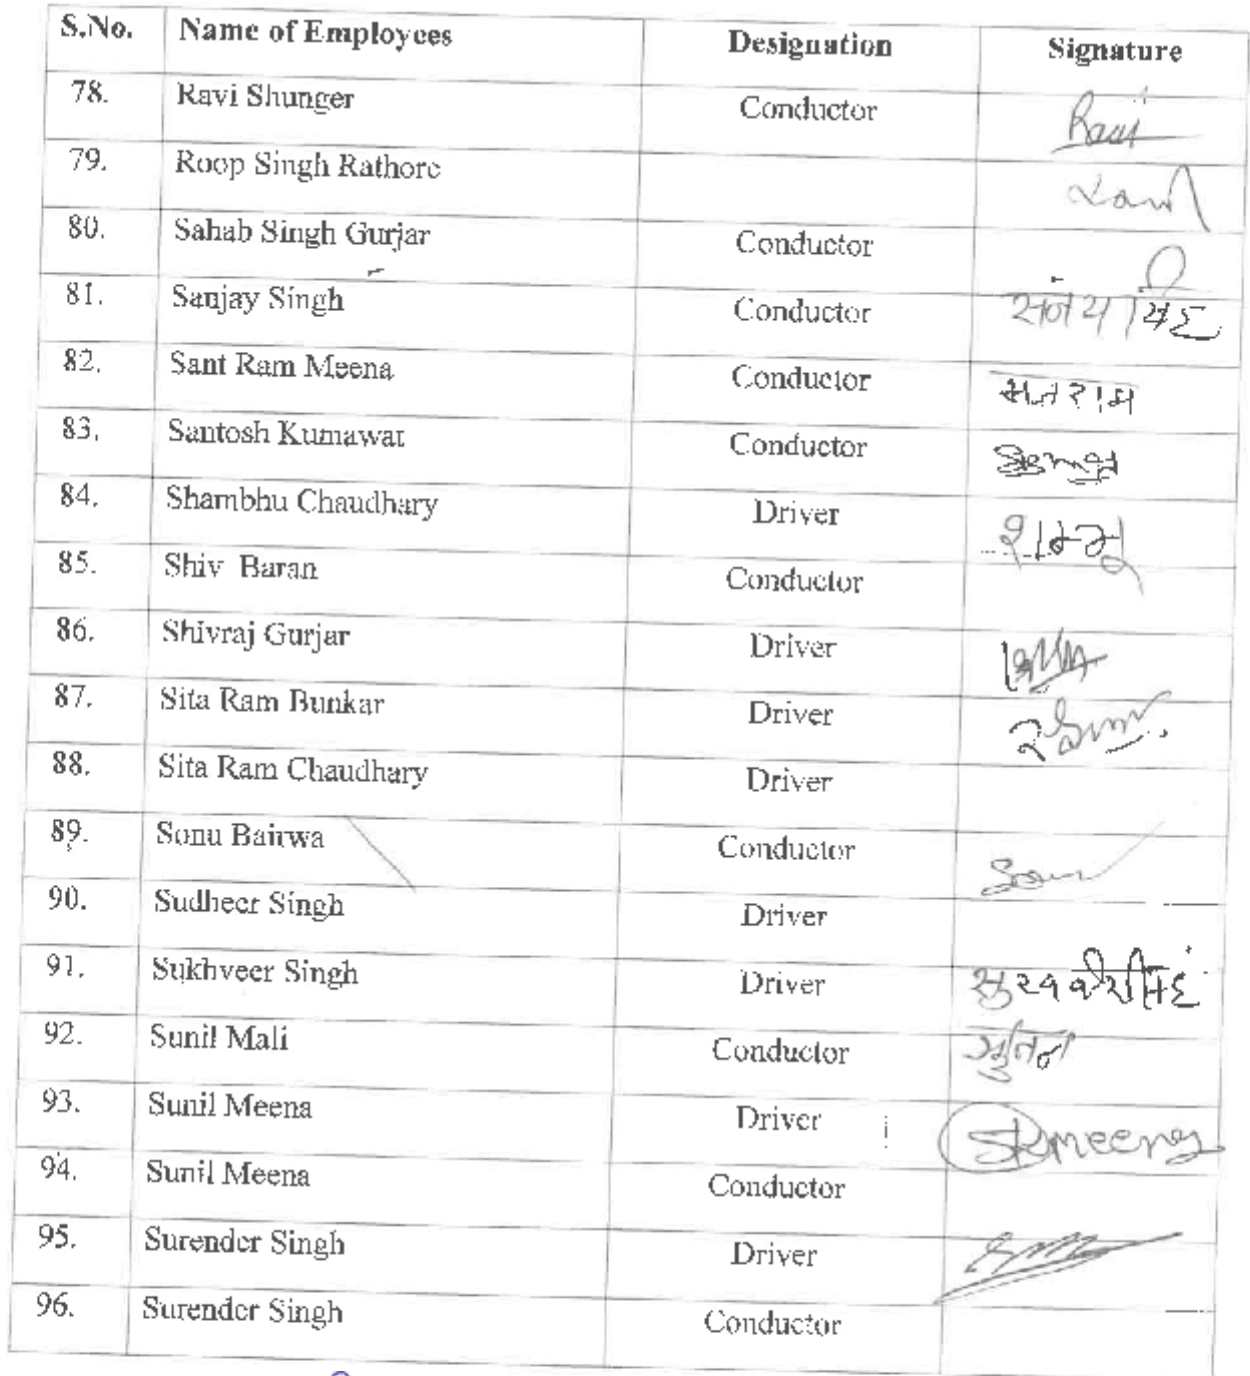 S.No. Name of Employees Designation Signature
78. Ravi Shunger Conductor Ravi
79. Roop Singh Rathore
80. Sahab Singh Gurjar Conductor
81. Sanjay Singh Conductor
82. Sant Ram Meena Conductor सन्तराम
83. Santosh Kumawat Conductor
84. Shambhu Chaudhary Driver शम्भु
85. Shiv Baran Conductor
86. Shivraj Gurjar Driver
87. Sita Ram Bunkar Driver
88. Sita Ram Chaudhary Driver
89. Sonu Bairwa Conductor
90. Sudheer Singh Driver
91. Sukhveer Singh Driver सुखवीरसिंह
92. Sunil Mali Conductor सुनिल
93. Sunil Meena Driver SKmeena
94. Sunil Meena Conductor
95. Surender Singh Driver
96. Surender Singh Conductor